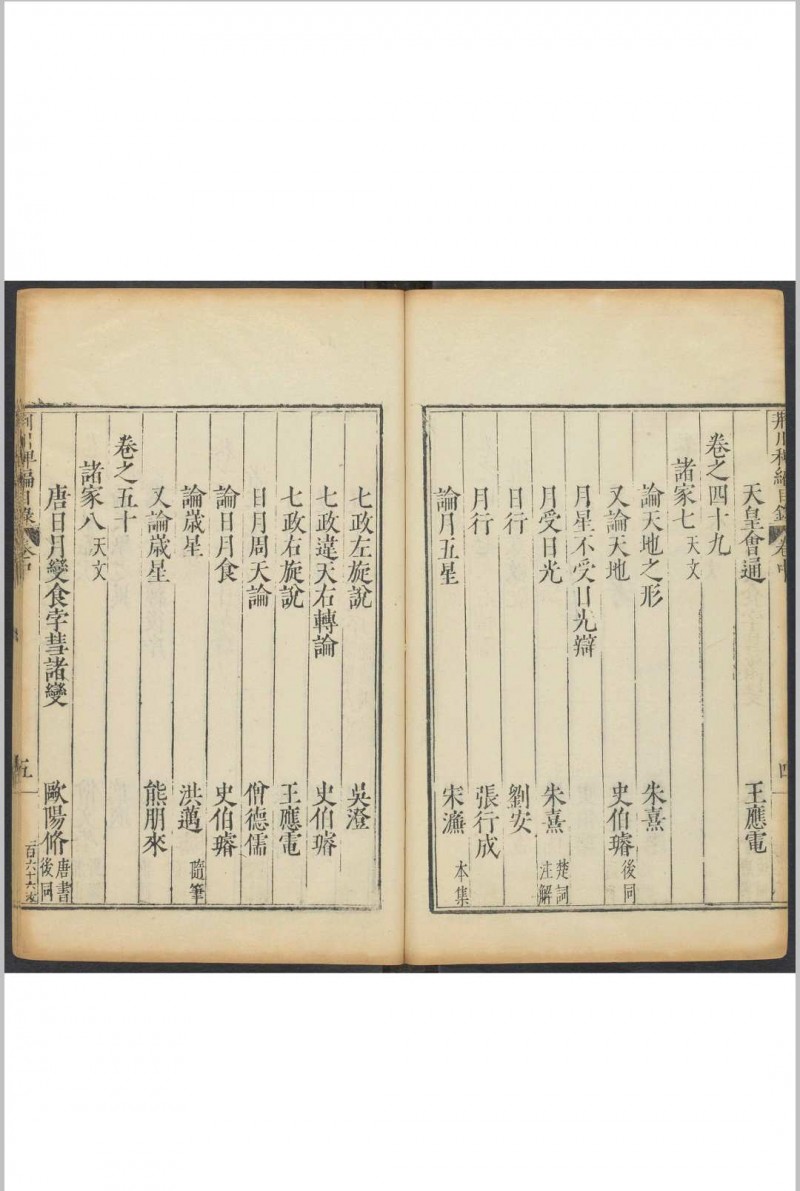 荆川稗編目錄 卷中 四
天皇會通 王應電
卷之四十九
諸家七 天文
論天地之形 朱熹
又論天地 史伯璿 後同
月星不受日光辯
月受日光 朱熹 楚詞注解
日行 劉安
月行 張行成
論月五星 宋濂 本集
七政左旋說 吳澄
七政違天右轉論 史伯璿
七政右旋說 王應電
日月周天論 僧德儒
論日月食 史伯璿
論歲星 洪邁 隨筆
又論歲星 熊朋來
卷之五十
諸家八 天文
唐日月變食孛彗諸變 歐陽脩 唐書後同
荆川稗編目錄 卷中 五